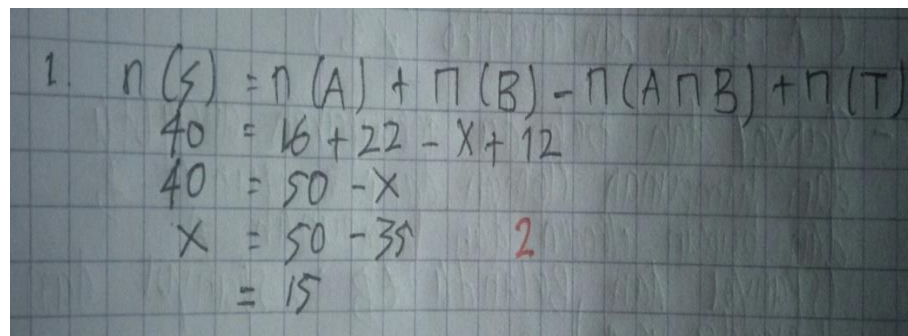 1. n(S) = n(A) + n(B) - n(A∩B) + n(T)
40 = 16 + 22 - x + 12
40 = 50 - x
x = 50 - 35 2
= 15